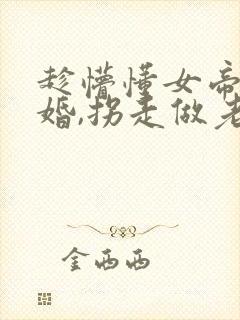 趁懵懂女帝
婚,拐走做老
金西西